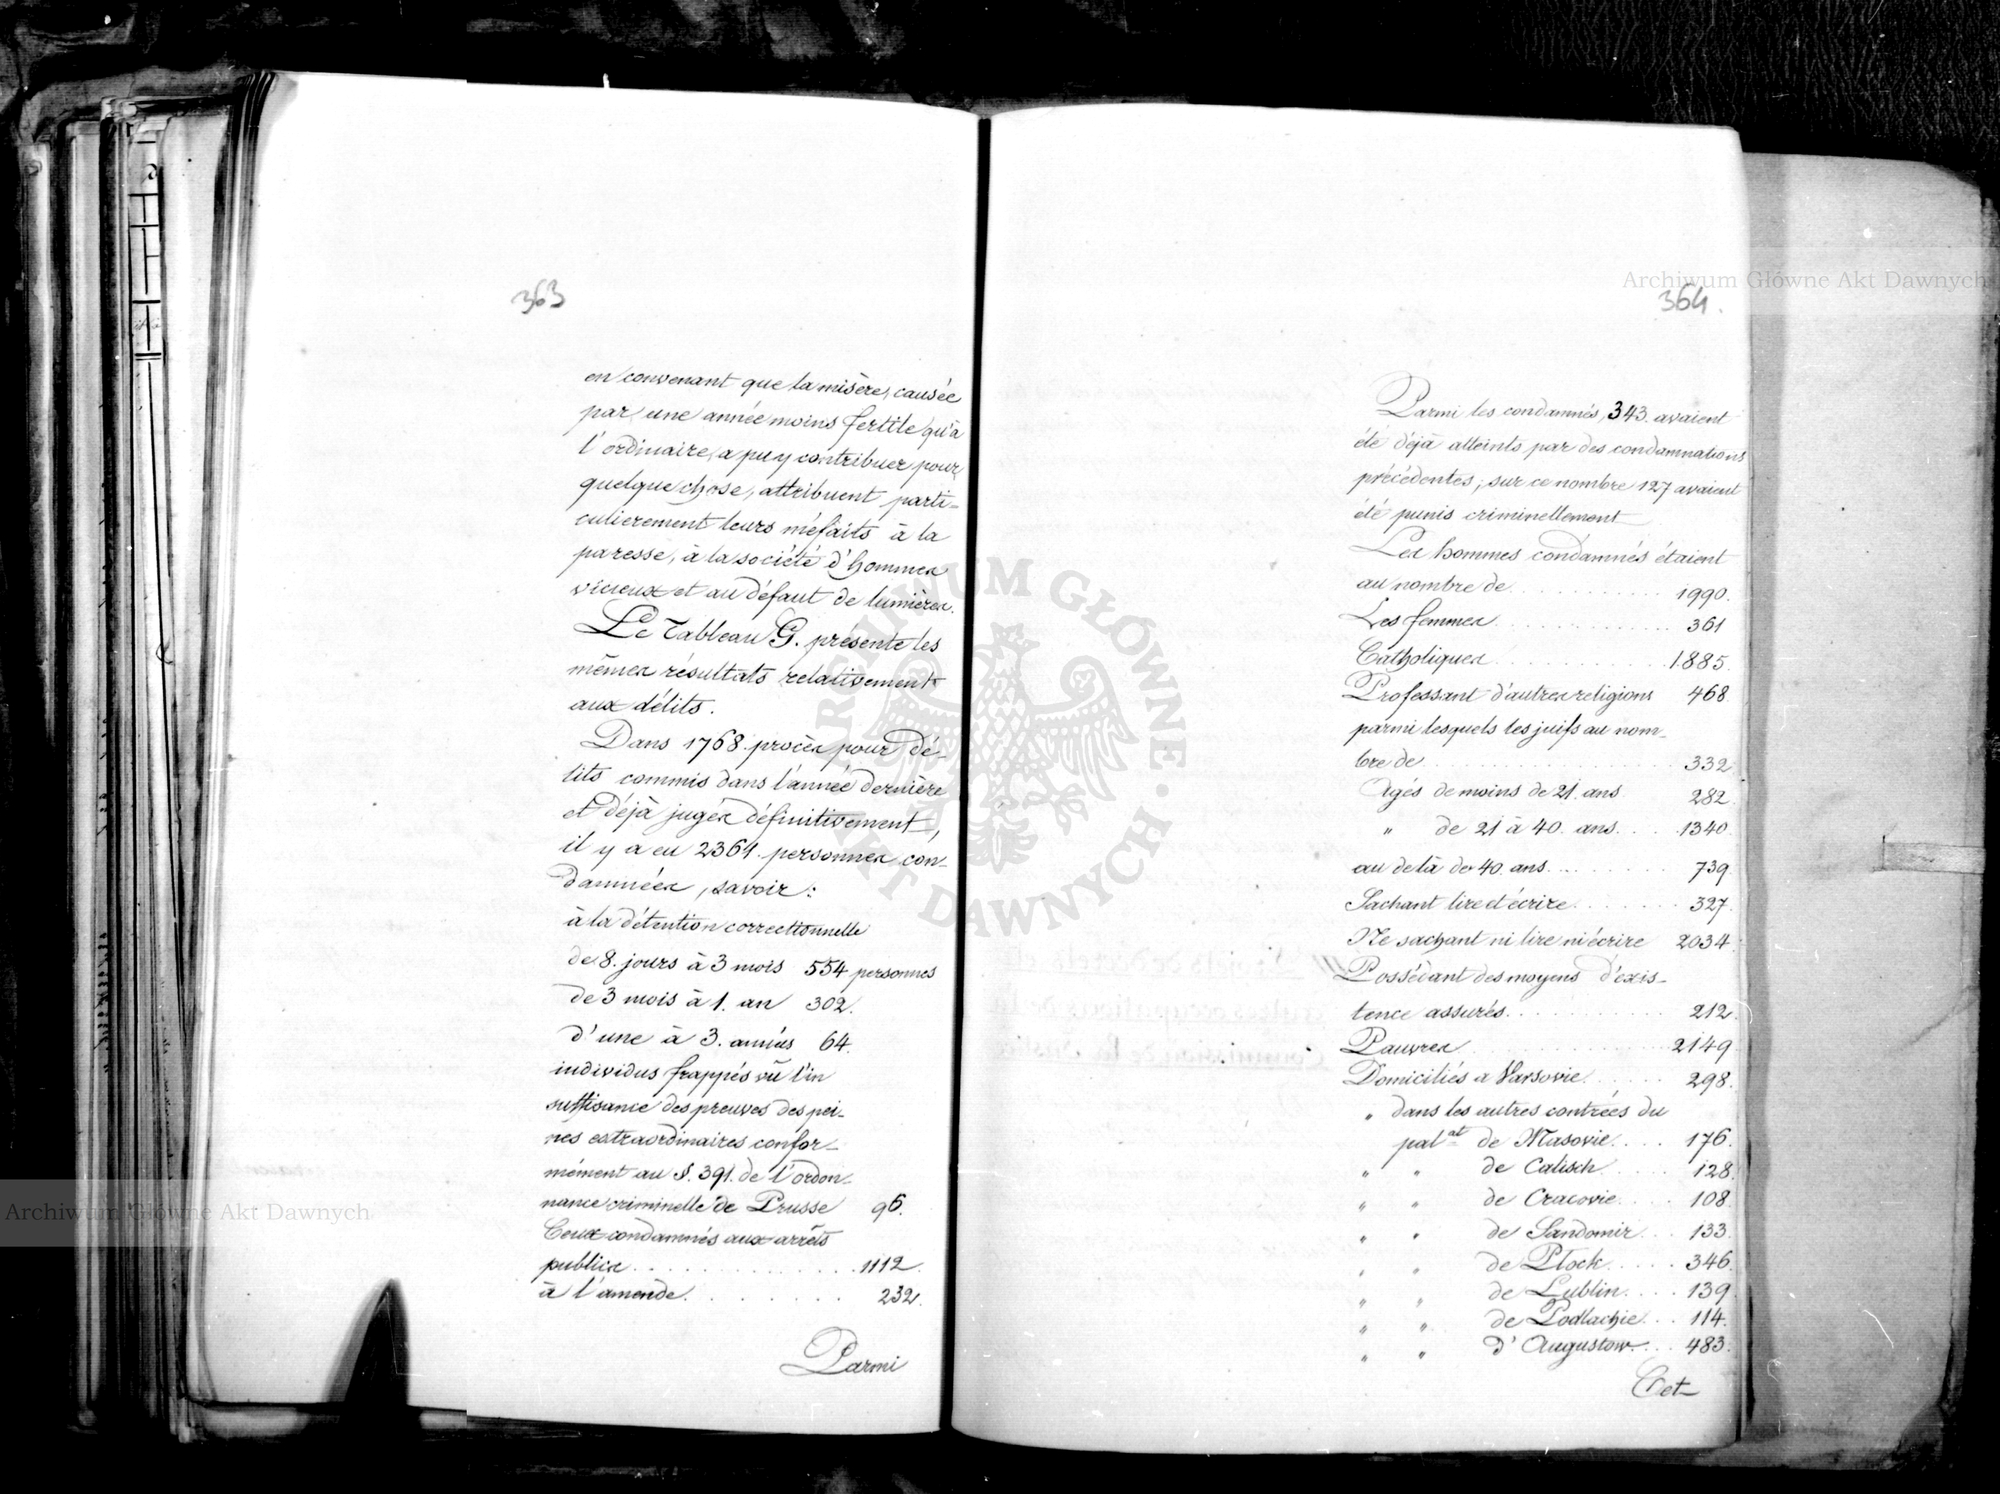 363
en convenant que la misère, causée
par une année moins fertile qu'à
l'ordinaire, a pu y contribuer pour
quelque chose, attribuent parti-
culierement leurs méfaits à la
paresse, à la société d'hommes
vicieux et au défaut de lumières.
Le Tableau G. présente les
mêmes résultats relativement
aux délits.
Dans 1768 procès pour dé-
lits commis dans l'année dernière
et déjà jugés définitivement,
il y a eu 2361 personnes con-
damnées, savoir:
à la détention correctionnelle
de 8. jours à 3 mois 554 personnes
de 3 mois à 1. an 302.
d'une à 3. années 64.
individus frappés vû l'in
suffisance des preuves des pei-
nes extraordinaires confor-
mément au §. 391. de l'ordon-
nance criminelle de Prusse 96.
Ceux condamnés aux arrêts
publics . . . . . . . . . . . 1112.
à l'amende. . . . . . . . 232.
Parmi
Archiwum Główne Akt Dawnych
364.
Parmi les condamnés, 343. avaient
été déjà atteints par des condamnations
précédentes; sur ce nombre 127 avaient
été punis criminellement
Les hommes condamnés étaient
au nombre de . . . . . . . . . . 1990.
Les femmes . . . . . . . . . . . 361
Catholiques . . . . . . . . . . . 1885.
Professant d'autres religions 468
parmi lesquels les juifs au nom-
bre de . . . . . . . . . . . . . 332
Agés de moins de 21. ans 282.
" de 21 à 40. ans. . . . 1340
au delà de 40. ans. . . . . . . . 739.
Sachant lire et écrire. . . . . . . 327.
Ne sachant ni lire ni écrire 2034.
Possédant des moyens d'exis-
tence assurés. . . . . . . . . . 212.
Pauvres . . . . . . . . . . . . 2149
Domiciliés a Varsovie. . . . . . 298.
" dans les autres contrées du
palat de Masovie. . . . 176.
" " de Calisch. . . . . 128
" " de Cracovie. . . . 108.
" " de Sandomir. . . 133.
" " de Plock. . . . . 346.
" " de Lublin. . . . 139.
" " de Podlachie. . . 114.
" " d'Augustow. . . 483.
Cet
Archiwum Główne Akt Dawnych
ARCHIWUM GŁÓWNE AKT DAWNYCH